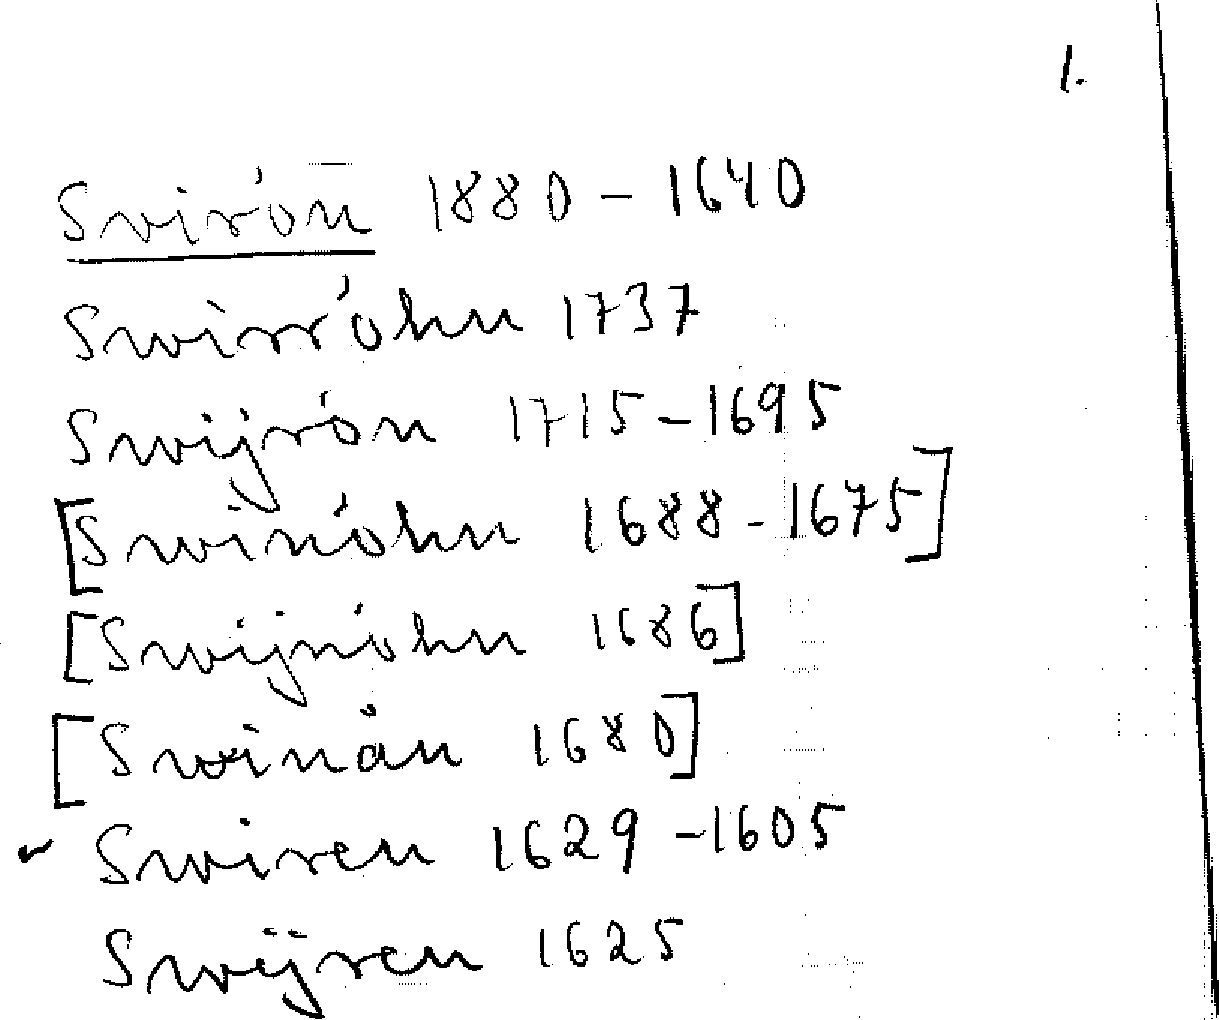 1.
Svirón 1880 – 1640
Swirróhn 1737
Swijrón 1715 – 1695
[Swinóhn 1688 - 1675]
[Swijnóhn 1686]
[Swinån 1680]
Swiren 1629 – 1605
Swijren 1625